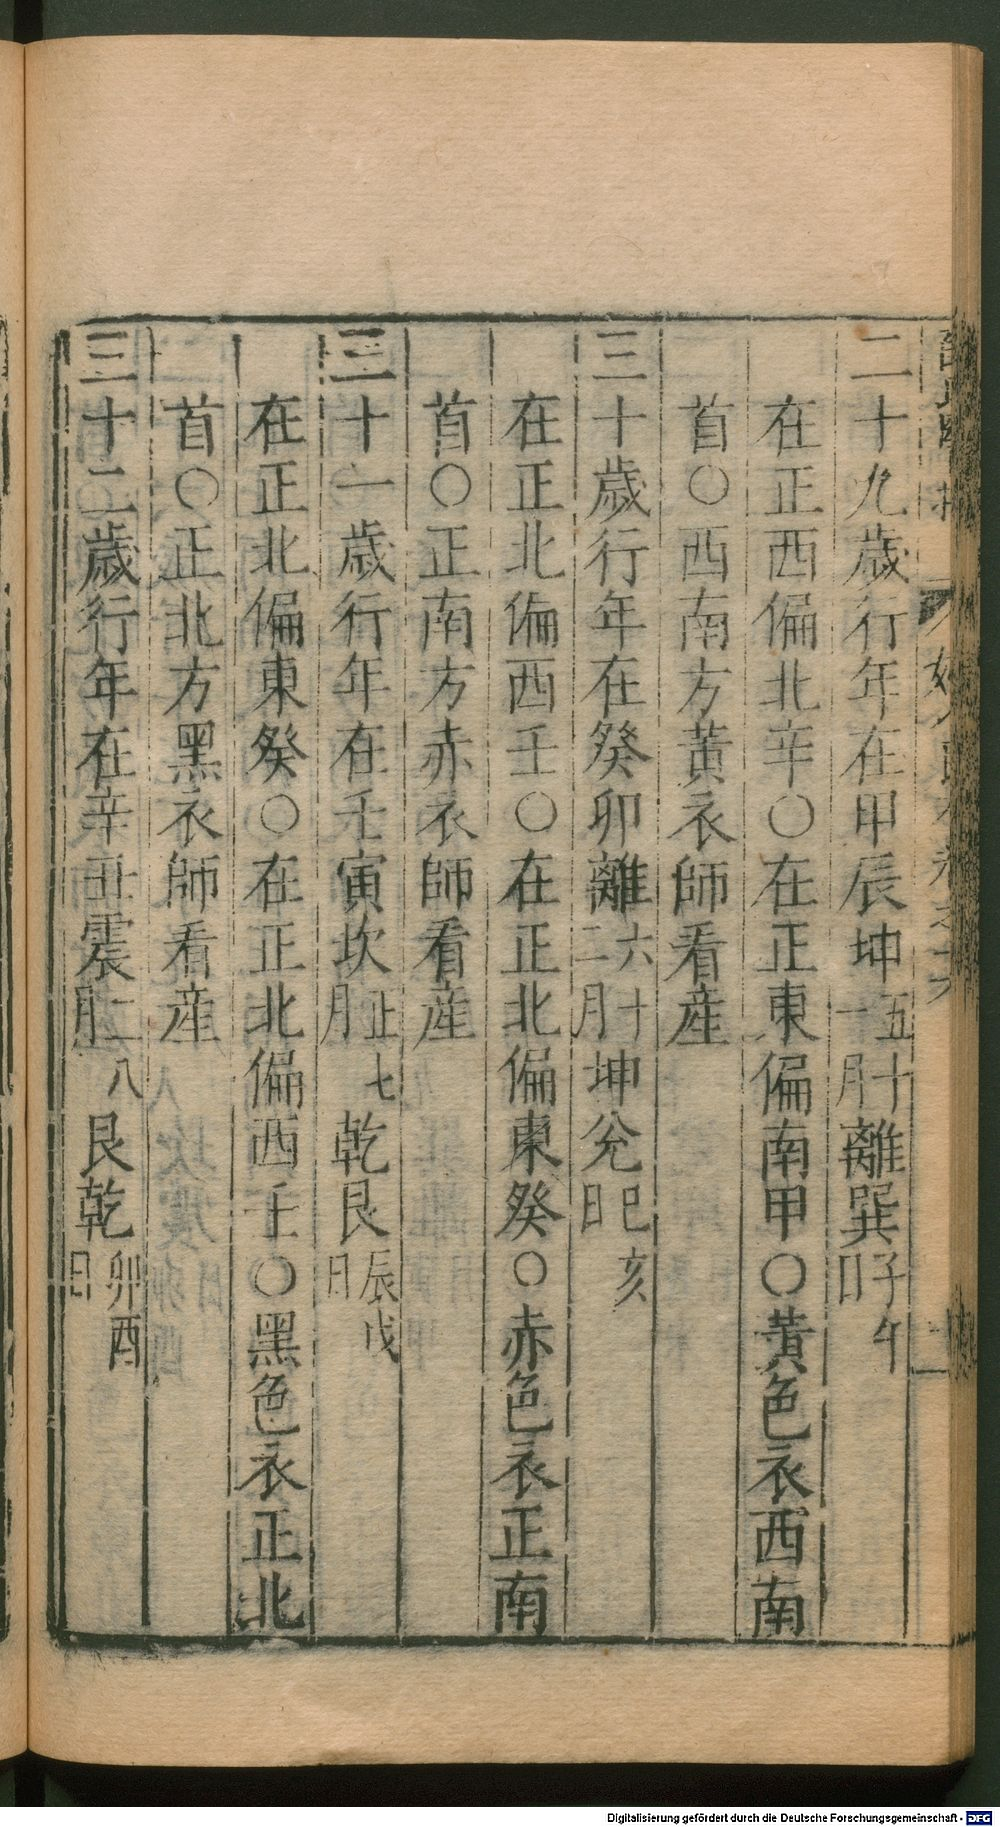 二十九歲行年在甲辰坤五十一月離巽子午日
在正西偏北辛〇在正東偏南甲〇黃色衣西南
首〇西南方黃衣師看產
三十歲行年在癸卯離六十二月坤兊巳亥日
在正北偏西壬〇在正北偏東癸〇赤色衣正南
首〇正南方赤衣師看產
三十一歲行年在壬寅坎正七月乾艮辰戌日
在正北偏東癸〇在正北偏西壬〇黑色衣正北
首〇正北方黑衣師看產
三十二歲行年在辛丑震二八月艮乾卯酉日
Digitalisierung gefördert durch die Deutsche Forschungsgemeinschaft - DFG